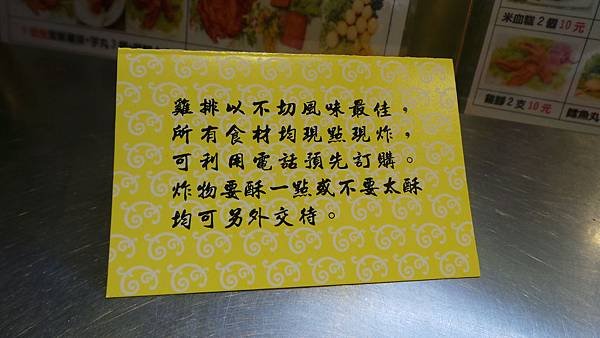 米血糕2個10元
雞脖2支10元
鱈魚丸
雞排以不切風味最佳，
所有食材均現點現炸，
可利用電話預先訂購。
炸物要酥一點或不要太酥
均可另外交待。